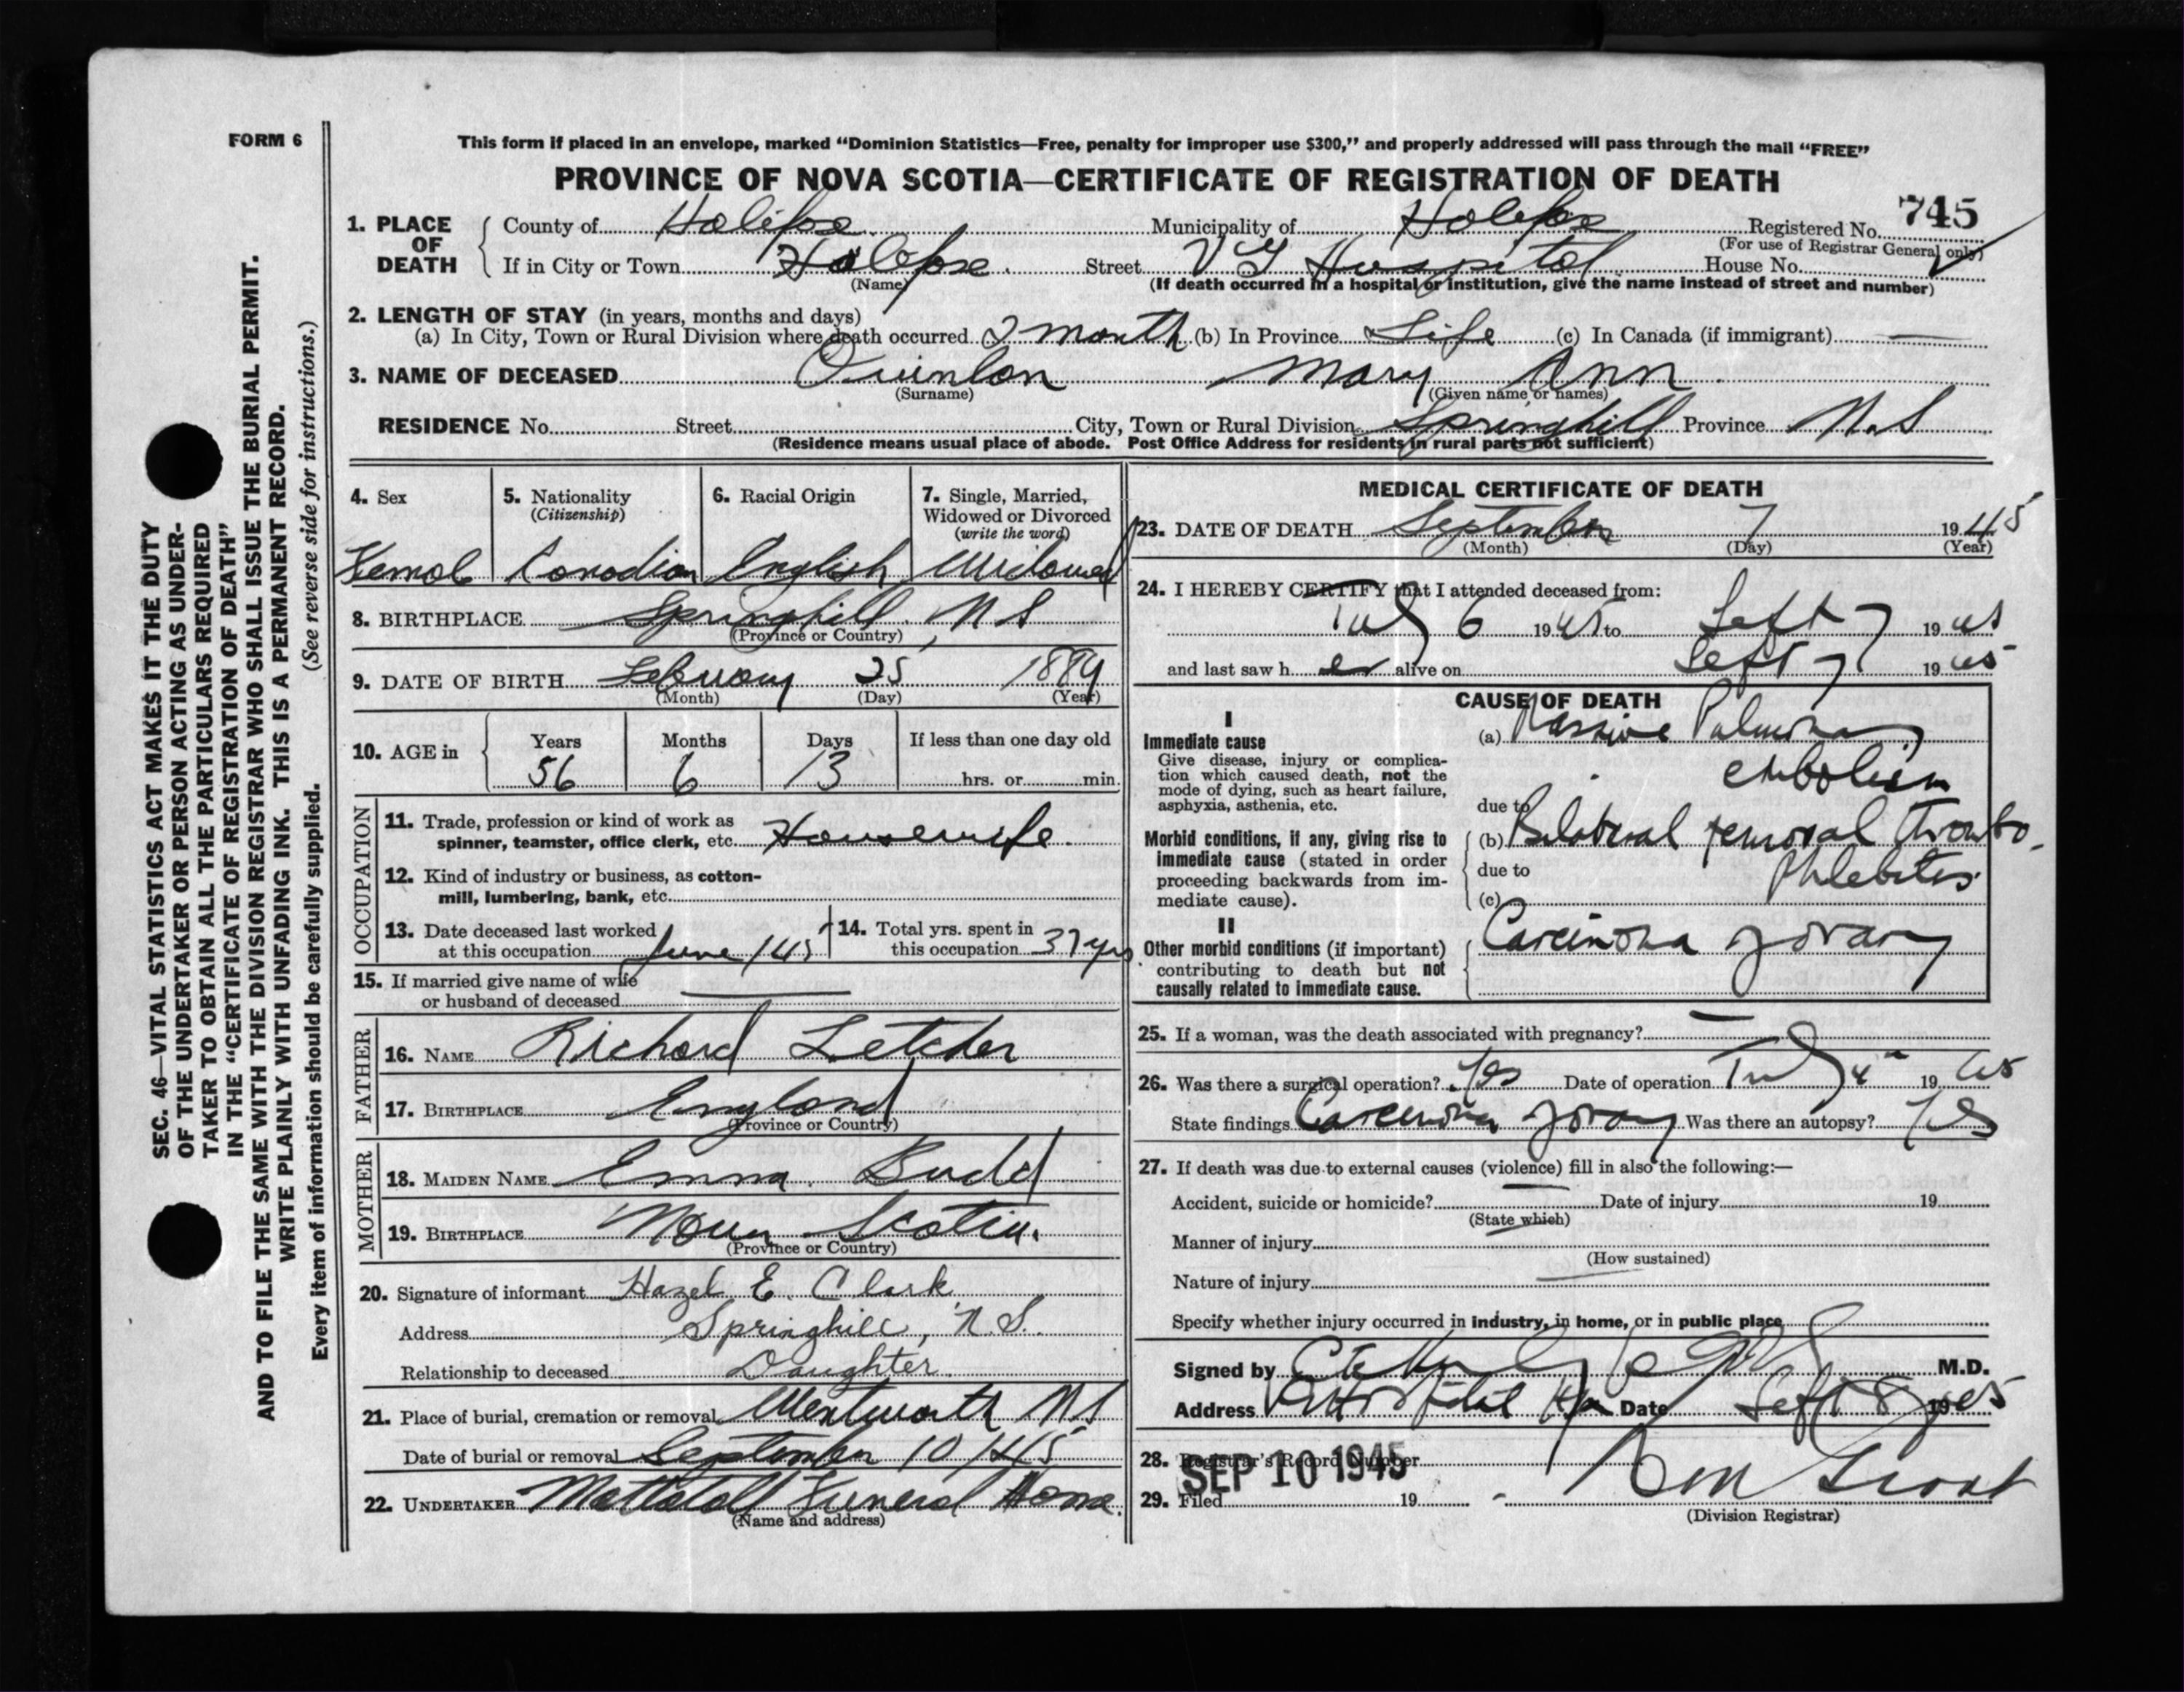 FORM 6
This form if placed in an envelope, marked “Dominion Statistics—Free, penalty for improper use $300,” and properly addressed will pass through the mail “FREE”
PROVINCE OF NOVA SCOTIA—CERTIFICATE OF REGISTRATION OF DEATH
745
1. PLACE OF DEATH County of Halifax Municipality of Halifax Registered No.
(For use of Registrar General only)
If in City or Town Halifax Street V G Hospital House No.
(Name) (If death occurred in a hospital or institution, give the name instead of street and number)
2. LENGTH OF STAY (in years, months and days)
(a) In City, Town or Rural Division where death occurred 2 month (b) In Province Life (c) In Canada (if immigrant) —
3. NAME OF DECEASED Quinlan Mary Ann
(Surname) (Given name or names)
RESIDENCE No. Street City, Town or Rural Division Springhill Province N.S
(Residence means usual place of abode. Post Office Address for residents in rural parts not sufficient)
SEC. 46—VITAL STATISTICS ACT MAKES IT THE DUTY
OF THE UNDERTAKER OR PERSON ACTING AS UNDER-
TAKER TO OBTAIN ALL THE PARTICULARS REQUIRED
IN THE “CERTIFICATE OF REGISTRATION OF DEATH”
AND TO FILE THE SAME WITH THE DIVISION REGISTRAR WHO SHALL ISSUE THE BURIAL PERMIT.
WRITE PLAINLY WITH UNFADING INK. THIS IS A PERMANENT RECORD.
Every item of information should be carefully supplied. (See reverse side for instructions.)
4. Sex
Femal
5. Nationality
(Citizenship)
Canadian
6. Racial Origin
English
7. Single, Married,
Widowed or Divorced
(write the word)
Widowed
8. BIRTHPLACE Springhill, N S
(Province or Country)
9. DATE OF BIRTH February 25 1889
(Month) (Day) (Year)
10. AGE in Years Months Days If less than one day old
56 6 13 hrs. or min.
OCCUPATION
11. Trade, profession or kind of work as
spinner, teamster, office clerk, etc. Housewife.
12. Kind of industry or business, as cotton-
mill, lumbering, bank, etc.
13. Date deceased last worked
at this occupation June /45
14. Total yrs. spent in
this occupation 37 yrs
15. If married give name of wife
or husband of deceased —
FATHER
16. NAME Richard Letcher
17. BIRTHPLACE England
(Province or Country)
MOTHER
18. MAIDEN NAME Emma Budd
19. BIRTHPLACE Nova Scotia.
(Province or Country)
20. Signature of informant Hazel E. Clark
Address Springhill, N.S.
Relationship to deceased Daughter
21. Place of burial, cremation or removal Wentworth N S
Date of burial or removal September 10/45
22. UNDERTAKER Mattatall Funeral Home.
(Name and address)
MEDICAL CERTIFICATE OF DEATH
23. DATE OF DEATH September 7 1945
(Month) (Day) (Year)
24. I HEREBY CERTIFY that I attended deceased from:
July 6 1945 to Sept 7 1945
and last saw her alive on Sept 7 1945
CAUSE OF DEATH
I
Immediate cause
Give disease, injury or complica-
tion which caused death, not the
mode of dying, such as heart failure,
asphyxia, asthenia, etc.
(a) Massive Pulmonary
embolism
due to
Morbid conditions, if any, giving rise to
immediate cause (stated in order
proceeding backwards from im-
mediate cause).
(b) Bilateral femoral thrombo-
due to phlebitis
(c)
II
Other morbid conditions (if important)
contributing to death but not
causally related to immediate cause.
Carcinoma of ovary
25. If a woman, was the death associated with pregnancy? —
26. Was there a surgical operation? Yes Date of operation July 4 1945
State findings Carcinoma of ovary Was there an autopsy? Yes
27. If death was due to external causes (violence) fill in also the following:—
Accident, suicide or homicide? Date of injury 19
(State which)
Manner of injury
(How sustained)
Nature of injury
Specify whether injury occurred in industry, in home, or in public place
Signed by M.D.
Address Date Sept 8 1945
28. Registrar's Record Number
SEP 10 1945
29. Filed 19
(Division Registrar)